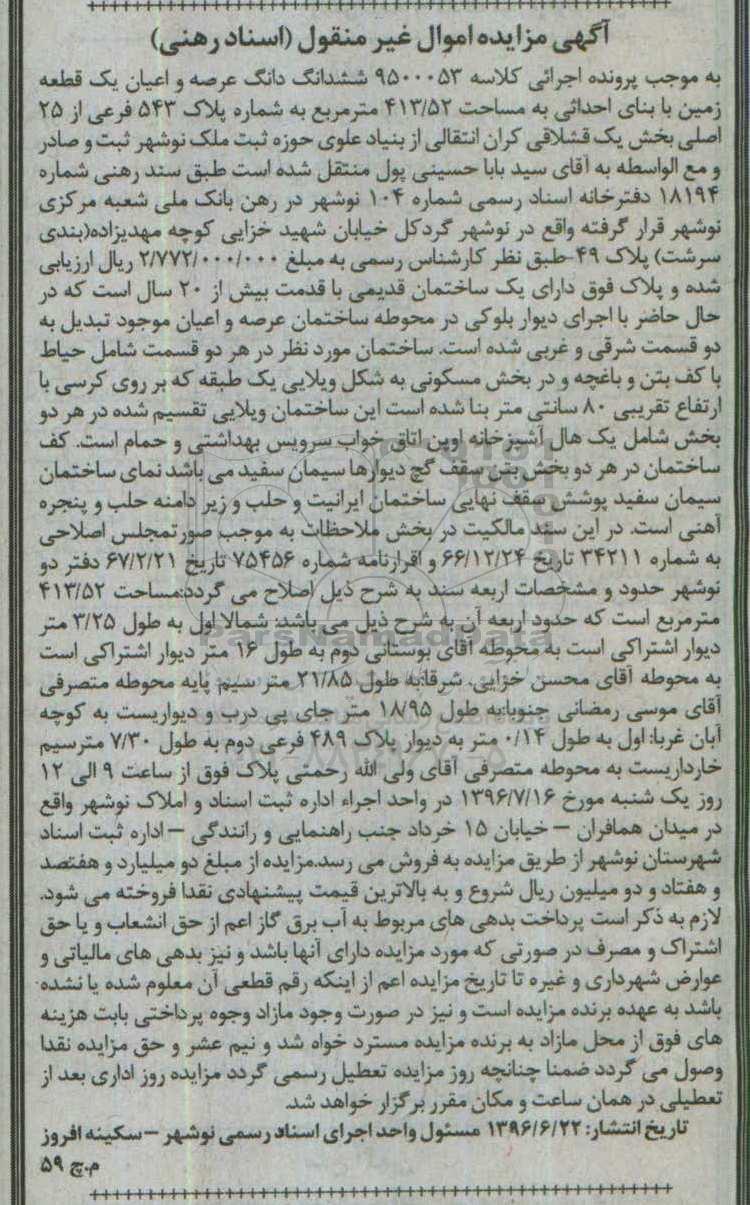 آگهی مزایده اموال غیر منقول (اسناد رهنی)
به موجب پرونده اجرائی کلاسه ۹۵۰۰۰۵۳ ششدانگ دانگ عرصه و اعیان یک قطعه
زمین با بنای احداثی به مساحت ۴۱۳/۵۲ مترمربع به شماره پلاک ۵۴۳ فرعی از ۲۵
اصلی بخش یک قشلاقی کران انتقالی از بنیاد علوی حوزه ثبت ملک نوشهر ثبت و صادر
و مع الواسطه به آقای سید بابا حسینی پول منتقل شده است طبق سند رهنی شماره
۱۸۱۹۴ دفترخانه اسناد رسمی شماره ۱۰۴ نوشهر در رهن بانک ملی شعبه مرکزی
نوشهر قرار گرفته واقع در نوشهر گردکل خیابان شهید خزایی کوچه مهدیزاده(بندی
سرشت) پلاک ۴۹-طبق نظر کارشناس رسمی به مبلغ ۲/۷۷۲/۰۰۰/۰۰۰ ریال ارزیابی
شده و پلاک فوق دارای یک ساختمان قدیمی با قدمت بیش از ۲۰ سال است که در
حال حاضر با اجرای دیوار بلوکی در محوطه ساختمان عرصه و اعیان موجود تبدیل به
دو قسمت شرقی و غربی شده است. ساختمان مورد نظر در هر دو قسمت شامل حیاط
با کف بتن و باغچه و در بخش مسکونی به شکل ویلایی یک طبقه که بر روی کرسی با
ارتفاع تقریبی ۸۰ سانتی متر بنا شده است این ساختمان ویلایی تقسیم شده در هر دو
بخش شامل یک هال آشپزخانه اوپن اتاق خواب سرویس بهداشتی و حمام است. کف
ساختمان در هر دو بخش بتن سقف گچ دیوارها سیمان سفید می باشد نمای ساختمان
سیمان سفید پوشش سقف نهایی ساختمان ایرانیت و حلب و زیر دامنه حلب و پنجره
آهنی است. در این سند مالکیت در بخش ملاحظات به موجب صورتمجلس اصلاحی
به شماره ۳۴۲۱۱ تاریخ ۶۶/۱۲/۲۴ و اقرارنامه شماره ۷۵۴۵۶ تاریخ ۶۷/۲/۲۱ دفتر دو
نوشهر حدود و مشخصات اربعه سند به شرح ذیل اصلاح می گردد:مساحت ۴۱۳/۵۲
مترمربع است که حدود اربعه آن به شرح ذیل می باشد: شمالا اول به طول ۳/۲۵ متر
دیوار اشتراکی است به محوطه آقای بوستانی دوم به طول ۱۶ متر دیوار اشتراکی است
به محوطه آقای محسن خزایی. شرقا:به طول ۲۱/۸۵ متر سیم پایه محوطه متصرفی
آقای موسی رمضانی جنوبا:به طول ۱۸/۹۵ متر جای پی درب و دیواریست به کوچه
آبان غربا: اول به طول ۰/۱۴ متر به دیوار پلاک ۴۸۹ فرعی دوم به طول ۷/۳۰ مترسیم
خارداریست به محوطه متصرفی آقای ولی الله رحمتی پلاک فوق از ساعت ۹ الی ۱۲
روز یک شنبه مورخ ۱۳۹۶/۷/۱۶ در واحد اجراء اداره ثبت اسناد و املاک نوشهر واقع
در میدان همافران – خیابان ۱۵ خرداد جنب راهنمایی و رانندگی – اداره ثبت اسناد
شهرستان نوشهر از طریق مزایده به فروش می رسد.مزایده از مبلغ دو میلیارد و هفتصد
و هفتاد و دو میلیون ریال شروع و به بالاترین قیمت پیشنهادی نقدا فروخته می شود.
لازم به ذکر است پرداخت بدهی های مربوط به آب برق گاز اعم از حق انشعاب و یا حق
اشتراک و مصرف در صورتی که مورد مزایده دارای آنها باشد و نیز بدهی های مالیاتی و
عوارض شهرداری و غیره تا تاریخ مزایده اعم از اینکه رقم قطعی آن معلوم شده یا نشده
باشد به عهده برنده مزایده است و نیز در صورت وجود مازاد وجوه پرداختی بابت هزینه
های فوق از محل مازاد به برنده مزایده مسترد خواه شد و نیم عشر و حق مزایده نقدا
وصول می گردد ضمنا چنانچه روز مزایده تعطیل رسمی گردد مزایده روز اداری بعد از
تعطیلی در همان ساعت و مکان مقرر برگزار خواهد شد.
تاریخ انتشار: ۱۳۹۶/۶/۲۲ مسئول واحد اجرای اسناد رسمی نوشهر – سکینه افروز
م.چ ۵۹
ParsNamadData